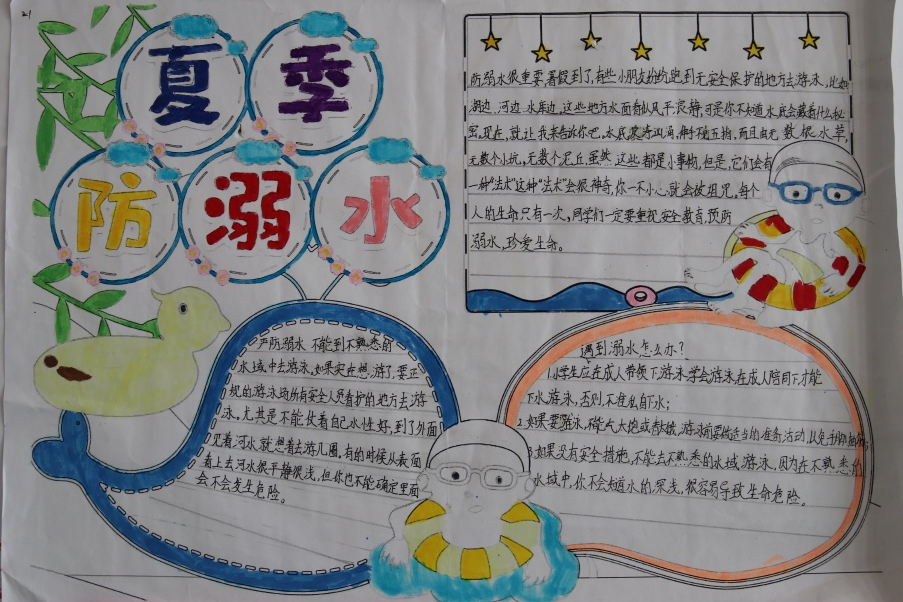 21
夏季
防溺水
防溺水很重要,暑假到了,有些小朋友纷纷跑到无安全保护的地方去游泳,比如
湖边,河边,水库边,这些地方水面看似风平浪静,可是你不知道水底会藏着什么秘
密,现在,就让我来告诉你吧,水底寒冷汹涌,伸手不见五指,而且有无数根水草,
无数个小坑,无数个泥丘,虽然,这些都是小事物,但是,它们会有
一种“法术”这种“法术”会很神奇,你一不小心,就会被诅咒,每个
人的生命只有一次,同学们一定要重视安全教育,预防
溺水,珍爱生命。
严防溺水 不能到不熟悉的
水域中去游泳,如果实在想游了,要正
规的游泳场所有安全人员看护的地方去游
泳,尤其是不能仗着自己水性好,到了外面
见着河水就想着去游几圈,有的时候从表面
看上去河水很平静很浅,但你也不能确定里面
会不会发生危险。
遇到溺水怎么办?
1.小学生应在成人带领下游泳,学会游泳,在成人陪同下,才能
下水游泳,否则不准私自下水;
2.如果要游泳,
游泳前要做适当的准备活动,以免
3.如果没有安全措施,不能去不熟悉的水域游泳,因为在不熟悉的
水域中,你不会知道水的深浅,很容易导致生命危险。